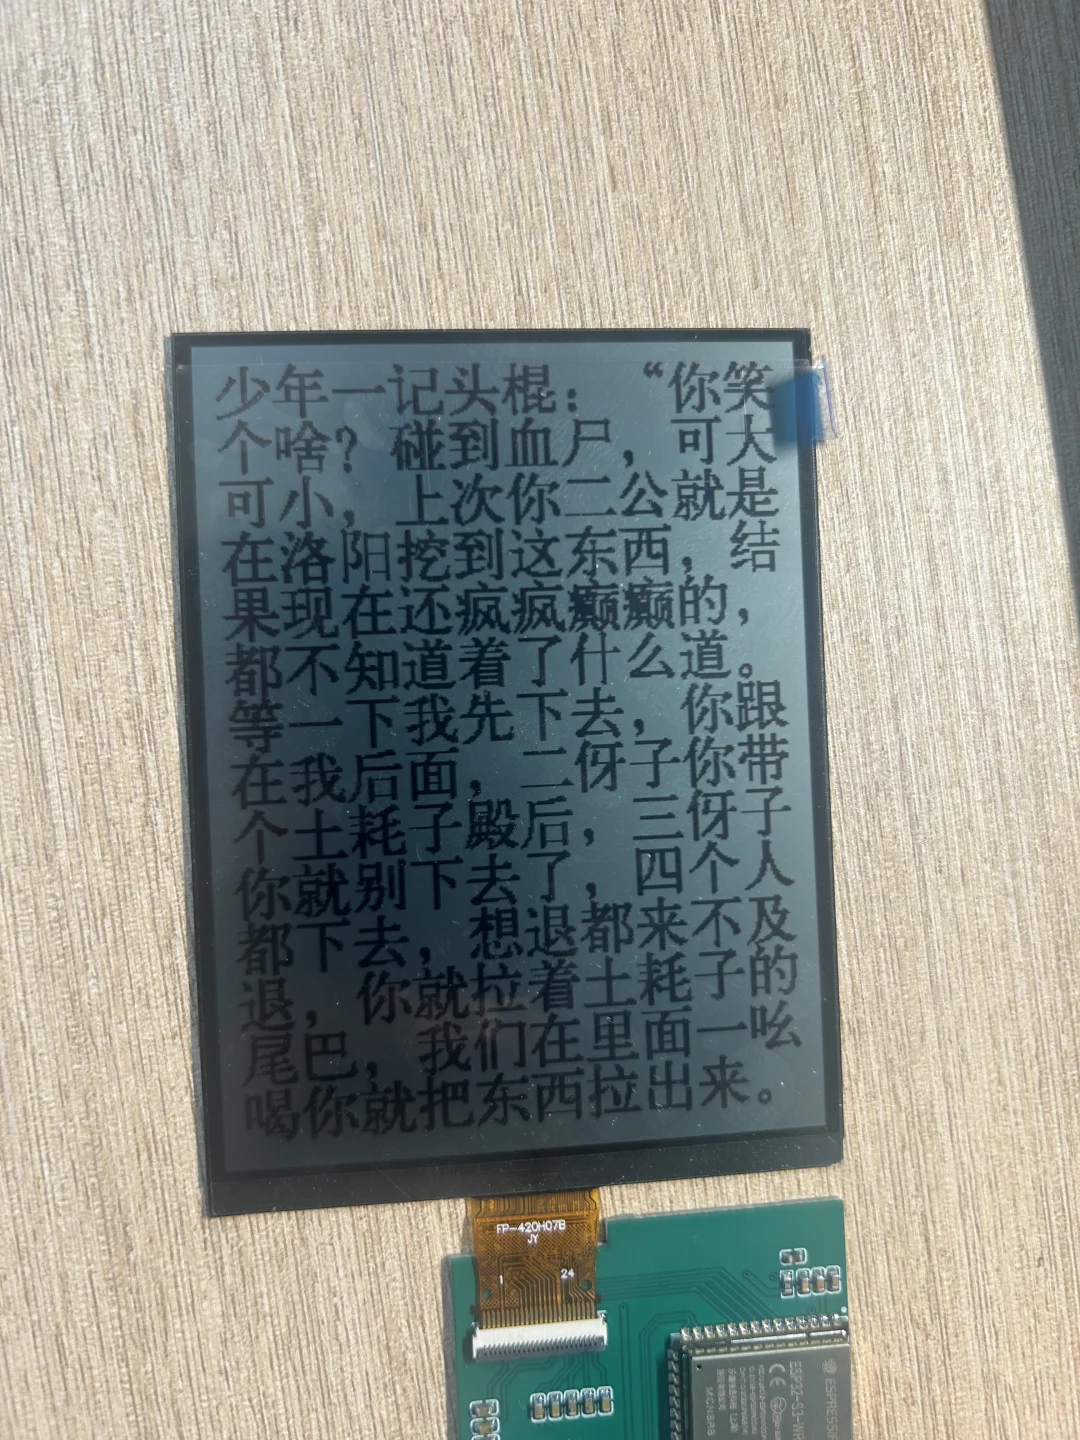 少年一记头棍：“你笑
个啥？碰到血尸，可大
可小，上次你二公就是
在洛阳挖到这东西，结
果现在还疯疯癫癫的，
都不知道着了什么道。
等一下我先下去，你跟
在我后面，二伢子你带
个土耗子殿后，三伢子
你就别下去了，四个人
都下去，想退都来不及
退，你就拉着土耗子的
尾巴，我们在里面一吆
喝你就把东西拉出来。
FP-420H07B
JY
1 24
ESPRESSIF
ESP32-S3-WR
CE
MCN8R8